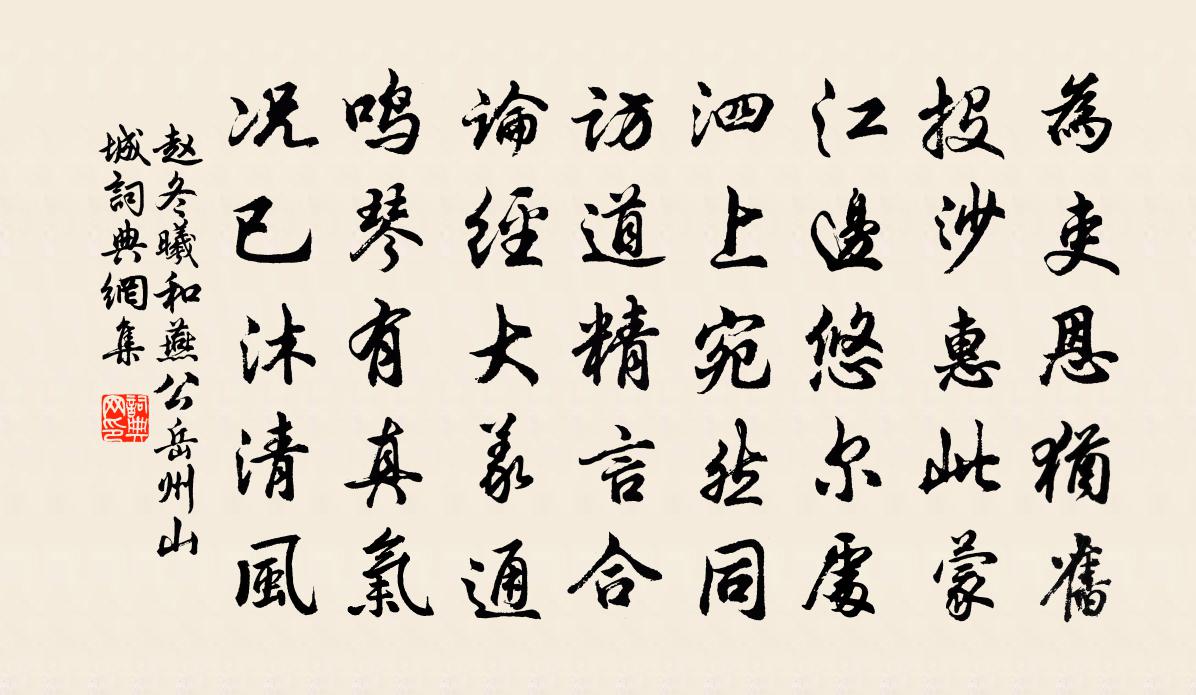 為吏恩猶舊
投沙惠此蒙
江邊悠尔處
泗上宛然同
訪道精言合
論經大義通
鳴琴有真氣
况已沐清風
赵冬曦和燕公岳州山
城詞典網集
詞典
网印